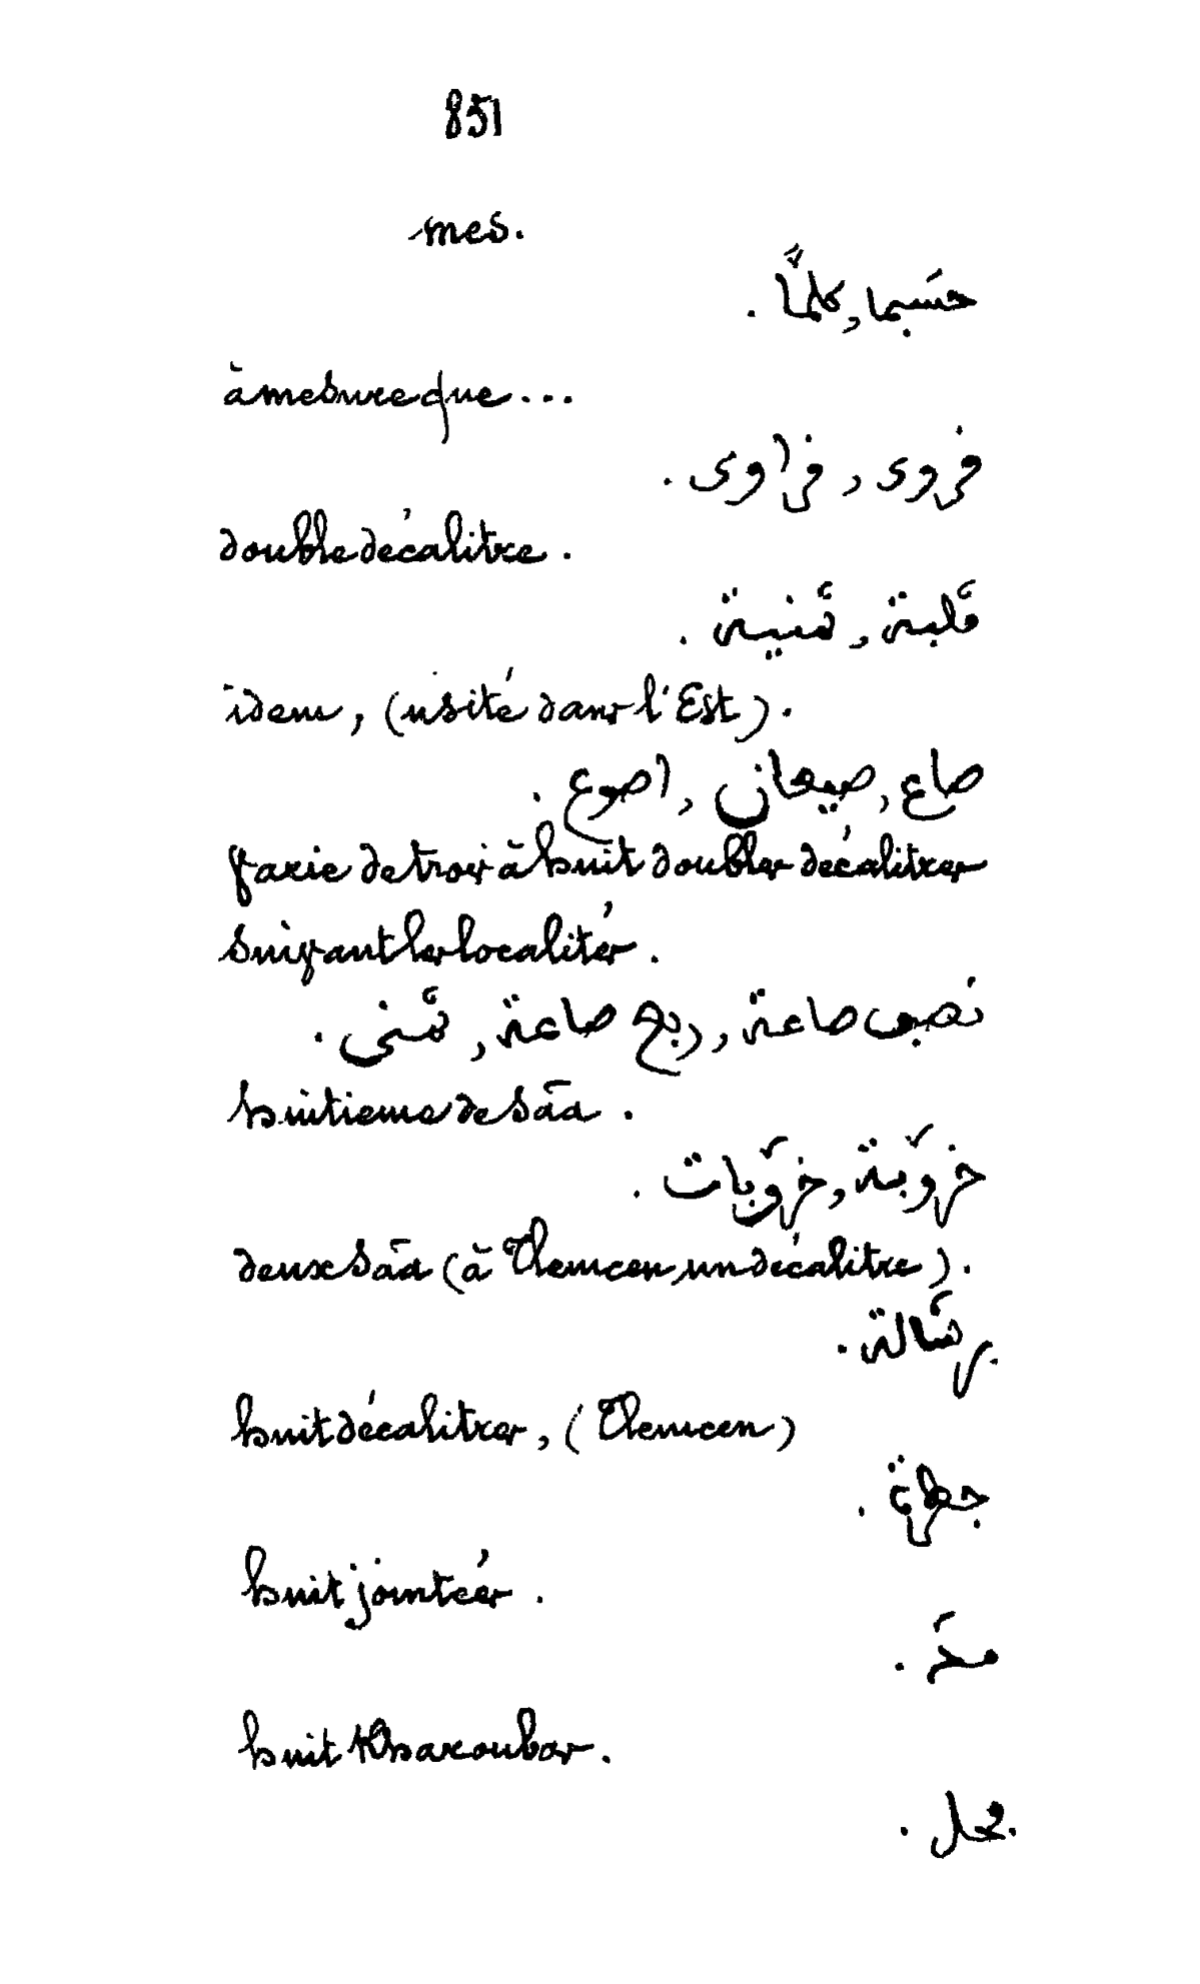 851
mes.
حسَبما, كلمّا.
à mesure que...
فروى, فراوى.
double décalitre.
فَلبة, ثَمنية.
idem, (usité dans l'Est).
صاع, صيعان, اصوع.
varie de trois à huit doubles décalitres
suivant les localités.
نصف صاعة, ربع صاعة, ثَمنى.
huitieme de sâa.
خرّوبة, خرّوبات.
deux sâa (à Tlemcen un décalitre).
برشَالة.
huit décalitres, (Tlemcen)
huit jointées.
مدّ.
huit Kharoubas.